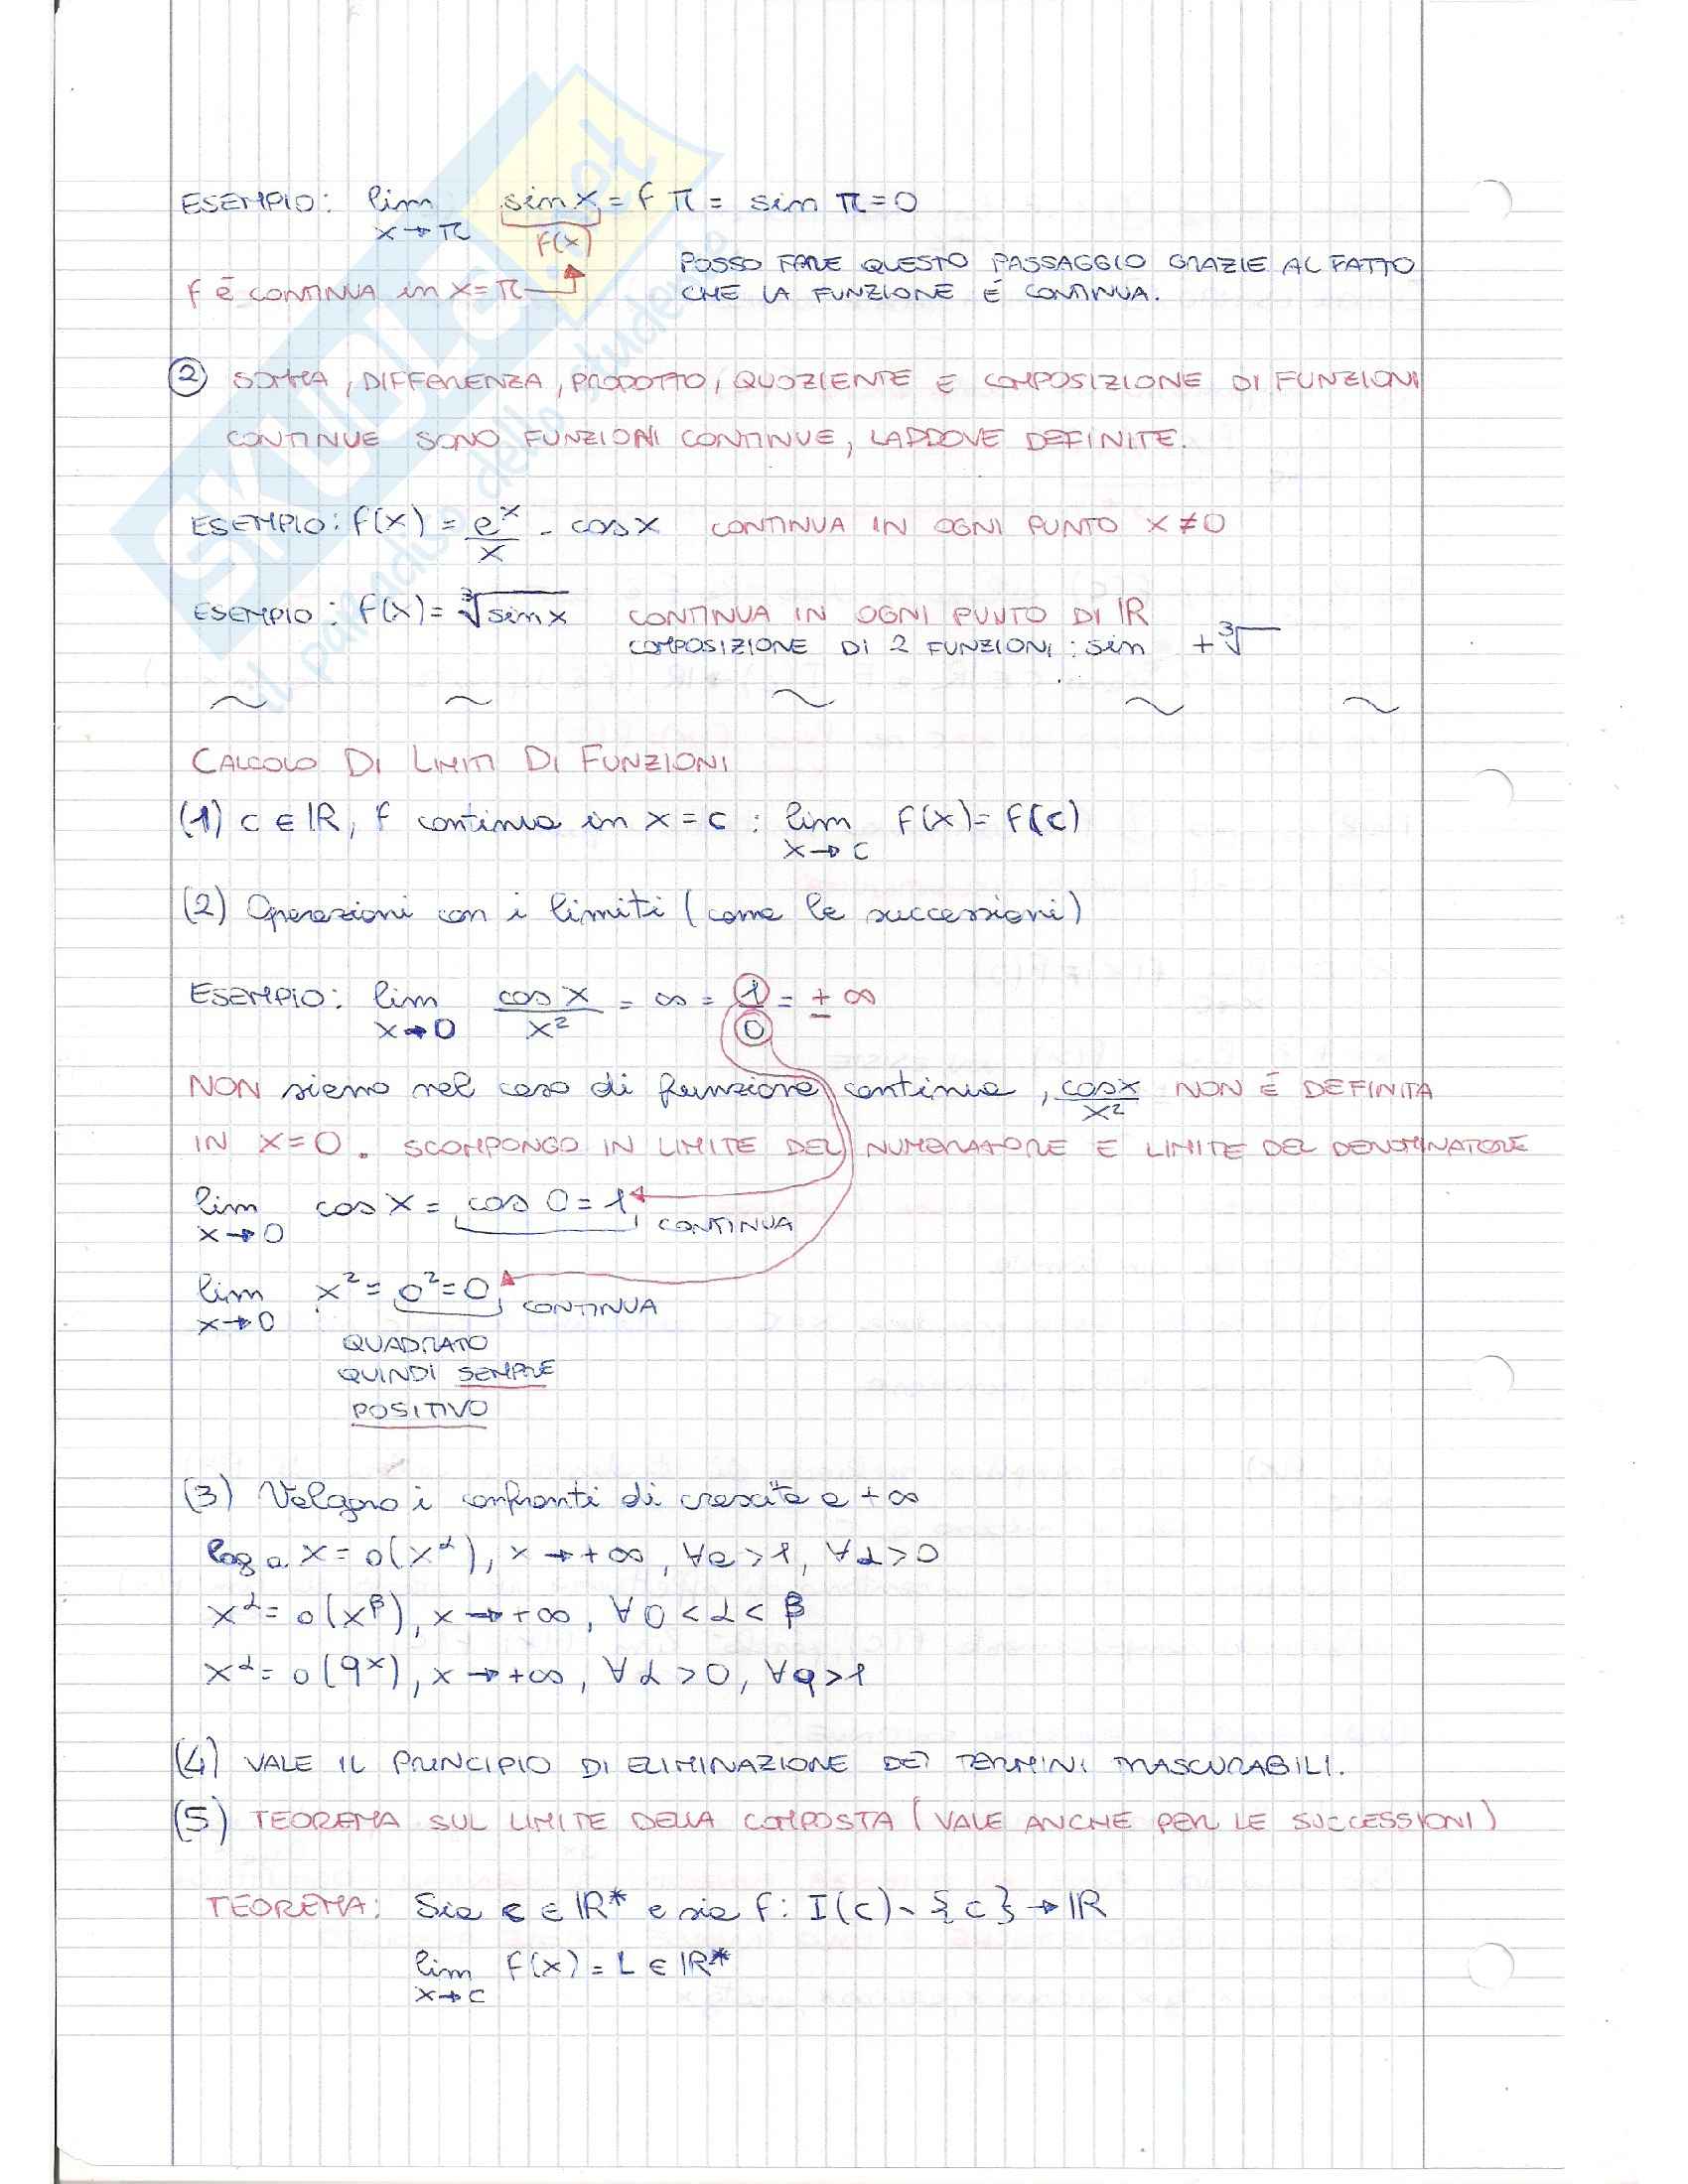 ESEMPIO: lim sin x = f π = sin π = 0
x→π f(x)
POSSO FARE QUESTO PASSAGGIO GRAZIE AL FATTO
f è CONTINUA in x=π CHE LA FUNZIONE É CONTINUA.
② SOMMA, DIFFERENZA, PRODOTTO, QUOZIENTE E COMPOSIZIONE DI FUNZIONI
CONTINUE SONO FUNZIONI CONTINUE, LADDOVE DEFINITE.
ESEMPIO: f(x) = e^x/x - cos x CONTINUA IN OGNI PUNTO x≠0
ESEMPIO: f(x) = ∛sin x CONTINUA IN OGNI PUNTO DI IR
COMPOSIZIONE DI 2 FUNZIONI: sin + ∛
~ ~ ~ ~ ~
CALCOLO DI LIMITI DI FUNZIONI
(1) c ∈ IR, f continua in x = c : lim f(x) = f(c)
x→c
(2) Operazioni con i limiti (come le successioni)
ESEMPIO: lim cos x/x² = ∞ = 1/0 = ± ∞
x→0
NON siamo nel caso di funzione continua, cosx/x² NON É DEFINITA
IN x=0. SCOMPONGO IN LIMITE DEL NUMERATORE E LIMITE DEL DENOMINATORE
lim cos x = cos 0 = 1 CONTINUA
x→0
lim x² = 0² = 0 CONTINUA
x→0
QUADRATO
QUINDI SEMPRE
POSITIVO
(3) Valgono i confronti di crescita a +∞
log a x = o(x^α), x→+∞, ∀a>1, ∀α>0
x^α = o(x^β), x→+∞, ∀0<α<β
x^α = o(q^x), x→+∞, ∀α>0, ∀q>1
(4) VALE IL PRINCIPIO DI ELIMINAZIONE DEI TERMINI TRASCURABILI.
(5) TEOREMA SUL LIMITE DELLA COMPOSTA (VALE ANCHE PER LE SUCCESSIONI)
TEOREMA: Sia c ∈ IR* e sia f: I(c)∖{c}→IR
lim f(x) = L ∈ IR*
x→c
SKUOLA.net
il paradiso dello studente